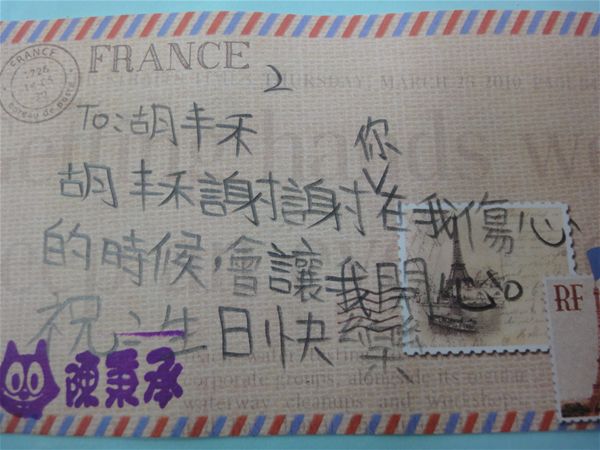 FRANCE
FRANCE
THURSDAY, MARCH 25 2010
2
To:胡丰禾
胡丰禾謝謝你在我傷心
的時候,會讓我開心。
祝:生日快樂
陳秉承
RF
corporate groups, alongside its
waterway cleanups and workshops